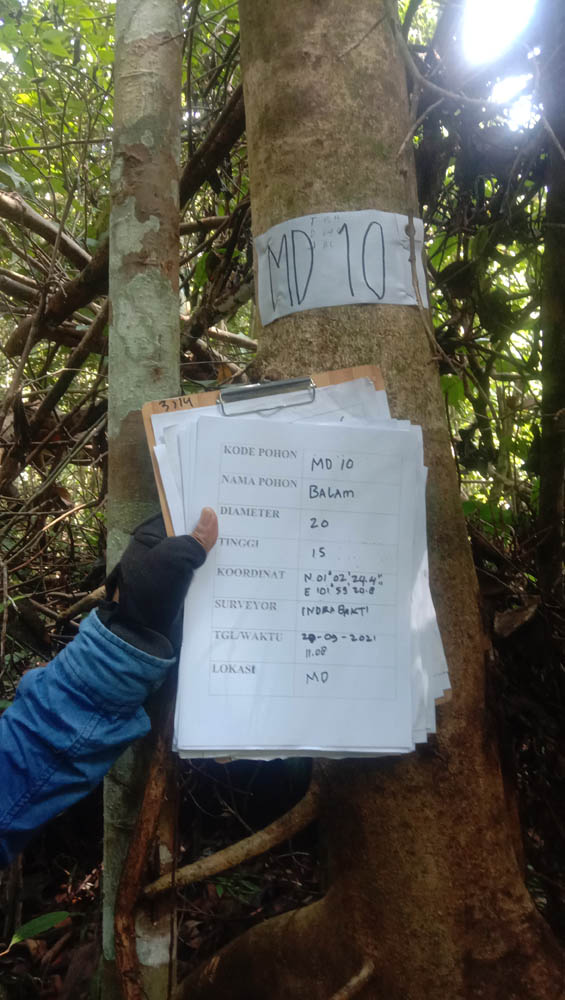 MD 10
3314
KODE POHON MD 10
NAMA POHON BALAM
DIAMETER 20
TINGGI 15
KOORDINAT N 01° 02' 24.4"
E 101° 59' 20.8
SURVEYOR INDRA BAKTI
TGL/WAKTU -09-2021
11.08
LOKASI MD